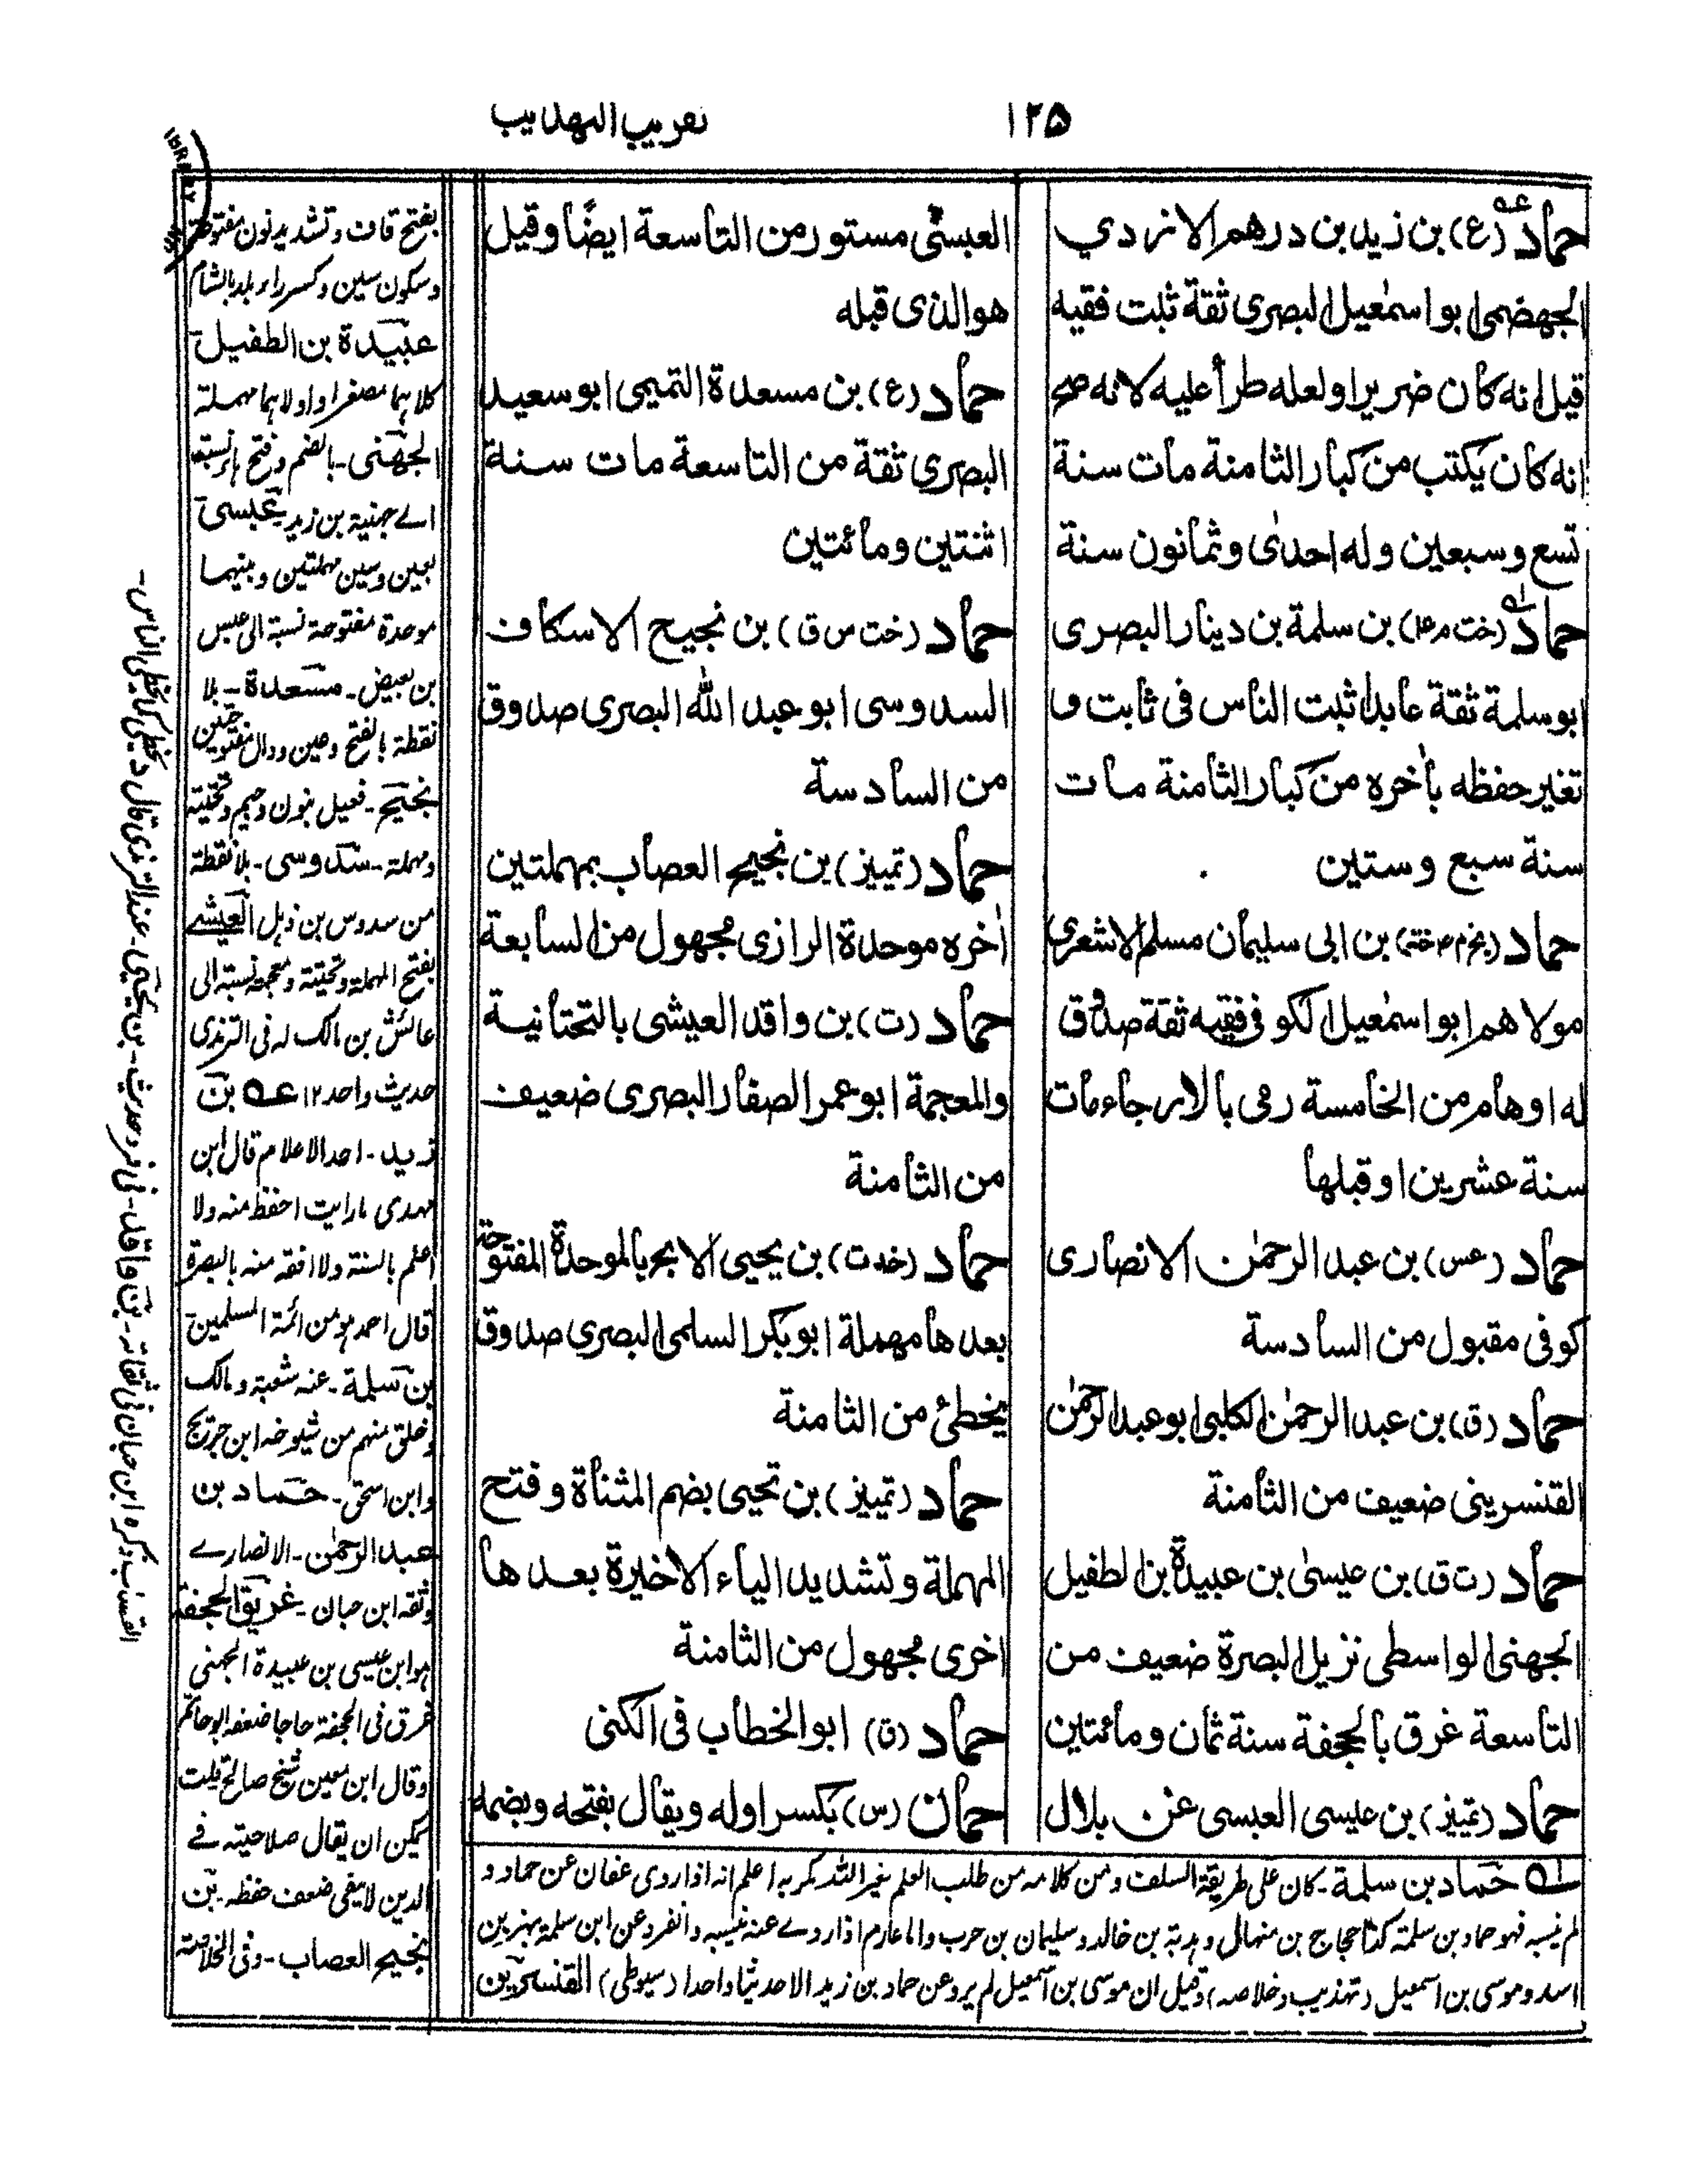 ١٢٥
تقريب التهذيب
حماد (ع) بن زيد بن درهم الازدي
الجهضمي ابو اسمٰعيل البصري ثقة ثبت فقيه
قيل انه كان ضريرا ولعله طرأ عليه لانه صح
انه كان يكتب من كبار الثامنة مات سنة
تسع وسبعين وله احدىٰ وثمانون سنة
حماد (خت م ٤) بن سلمة بن دينار البصرى
ابو سلمة ثقة عابد اثبت الناس فى ثابت و
تغير حفظه بأخره من كبار الثامنة مات
سنة سبع وستين
حماد (بخ م ٤) بن ابى سليمان مسلم الاشعرى
مولاهم ابو اسمٰعيل الكوفى فقيه ثقة صدوق
له اوهام من الخامسة رمى بالارجاء مات
سنة عشرين او قبلها
حماد (عس) بن عبد الرحمٰن الانصارى
كوفى مقبول من السادسة
حماد (ق) بن عبد الرحمٰن الكلبى ابو عبد الرحمٰن
القنسرينى ضعيف من الثامنة
حماد (ت ق) بن عيسىٰ بن عبيدة بن الطفيل
الجهنى الواسطى نزيل البصرة ضعيف من
التاسعة غرق بالجحفة سنة ثمان ومائتين
حماد (تمييز) بن عيسى العبسى عن بلال
العبسى مستور من التاسعة ايضًا وقيل
هو الذى قبله
حماد (ع) بن مسعدة التميمى ابو سعيد
البصرى ثقة من التاسعة مات سنة
اثنتين ومائتين
حماد (خت س ق) بن نجيح الاسكاف
السدوسى ابو عبد الله البصرى صدوق
من السادسة
حماد (تمييز) بن نجيح العصاب بمهملتين
اٰخره موحدة الرازى مجهول من السابعة
حماد (ت) بن واقد العيشى بالتحتانية
والمعجمة ابو عمر الصفار البصرى ضعيف
من الثامنة
حماد (خد ت) بن يحيى الابح بالموحدة المفتوحة
بعدها مهملة ابو بكر السلمى البصرى صدوق
يخطئ من الثامنة
حماد (تمييز) بن تحيى بضم المثناة وفتح
المهملة وتشديد الياء الاخيرة بعدها
اخرى مجهول من الثامنة
حماد (ق) ابو الخطاب فى الكنى
حمان (س) بكسر اوله ويقال بفتحه وبضمه
بفتح قاف وتشديد نون مفتوحة
وسكون سين وكسر راء بلد بالشام
عبيدة بن الطفيل
كلاهما مصغرا واولاهما مهملة
الجهنى - بالضم وفتح هاء نسبة
الے جهنية بن زيد عبسى
بعين وسين مهملتين وبينهما
موحدة مفتوحة نسبة الى عبس
بن بغيض - مسعدة - بلا
نقطة بالفتح وعين ودال مفتوحتين
نجيح - فعيل بنون وجيم وتحتية
ومهملة - سدوسى - بلا نقطة
من سدوس بن ذهل العيشے
بفتح المهملة وتحتية ومعجمة نسبة الى
عائش بن مالك له فى الترمذى
حديث واحد ١٢ عه بن
زيد - احد الاعلام قال ابن
مهدى ما رايت احفظ منه ولا
اعلم بالسنة ولا افقه منه بالبصرة
قال احمد هو من ائمة المسلمين
بن سلمة - عنه شعبة ومالك
وخلق منهم من شيوخه ابن جريج
وابن اسحق - حماد بن
عبد الرحمٰن - الانصارے
وثقه ابن حبان - غريق الجحفة
هو ابن عيسى بن عبيدة الجهنى
غرق فى الجحفة حاجا ضعفه ابو حاتم
وقال ابن معين شيخ صالح قلت
يمكن ان يقال صلاحيته فے
الدين لا ينفى ضعف حفظه - بن
نجيح العصاب - وفى الخلاصة
القصاب ذكره ابن حبان فى ثقاته - بن واقد - فى فرد حديث - بن يحيى - عند الترمذى قال يخطى كما يخطى الناس -
له حماد بن سلمة - كان على طريقة السلف ومن كلامه من طلب العلم لغير الله مكر به اعلم انه اذا روى عفان عن حماد و
لم ينسبه فهو حماد بن سلمة كذا حجاج بن منهال وهدبة بن خالد وسليمان بن حرب واما عارم اذا روے عنه نسبه وانفرد عن ابن سلمة بهز بن
اسد وموسى بن اسمعيل (تهذيب وخلاصه) وقيل ان موسى بن اسمعيل لم يرو عن حماد بن زيد الا حديثا واحدا (سيوطى) القنسرين